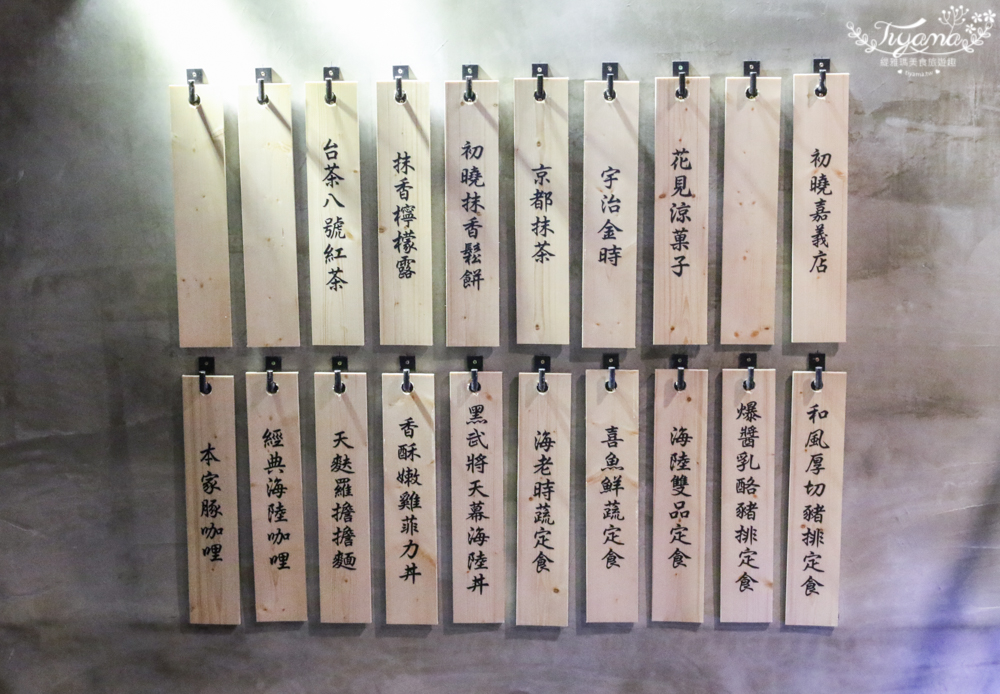 初曉嘉義店
花見涼菓子
宇治金時
京都抹茶
初曉抹香鬆餅
抹香檸檬露
台茶八號紅茶
和風厚切豬排定食
爆醬乳酪豬排定食
海陸雙品定食
喜魚鮮蔬定食
海老時蔬定食
黑武將天幕海陸丼
香酥嫩雞菲力丼
天麩羅擔擔麵
經典海陸咖哩
本家豚咖哩
Tiyama
緹雅瑪美食旅遊趣
tiyama.tw